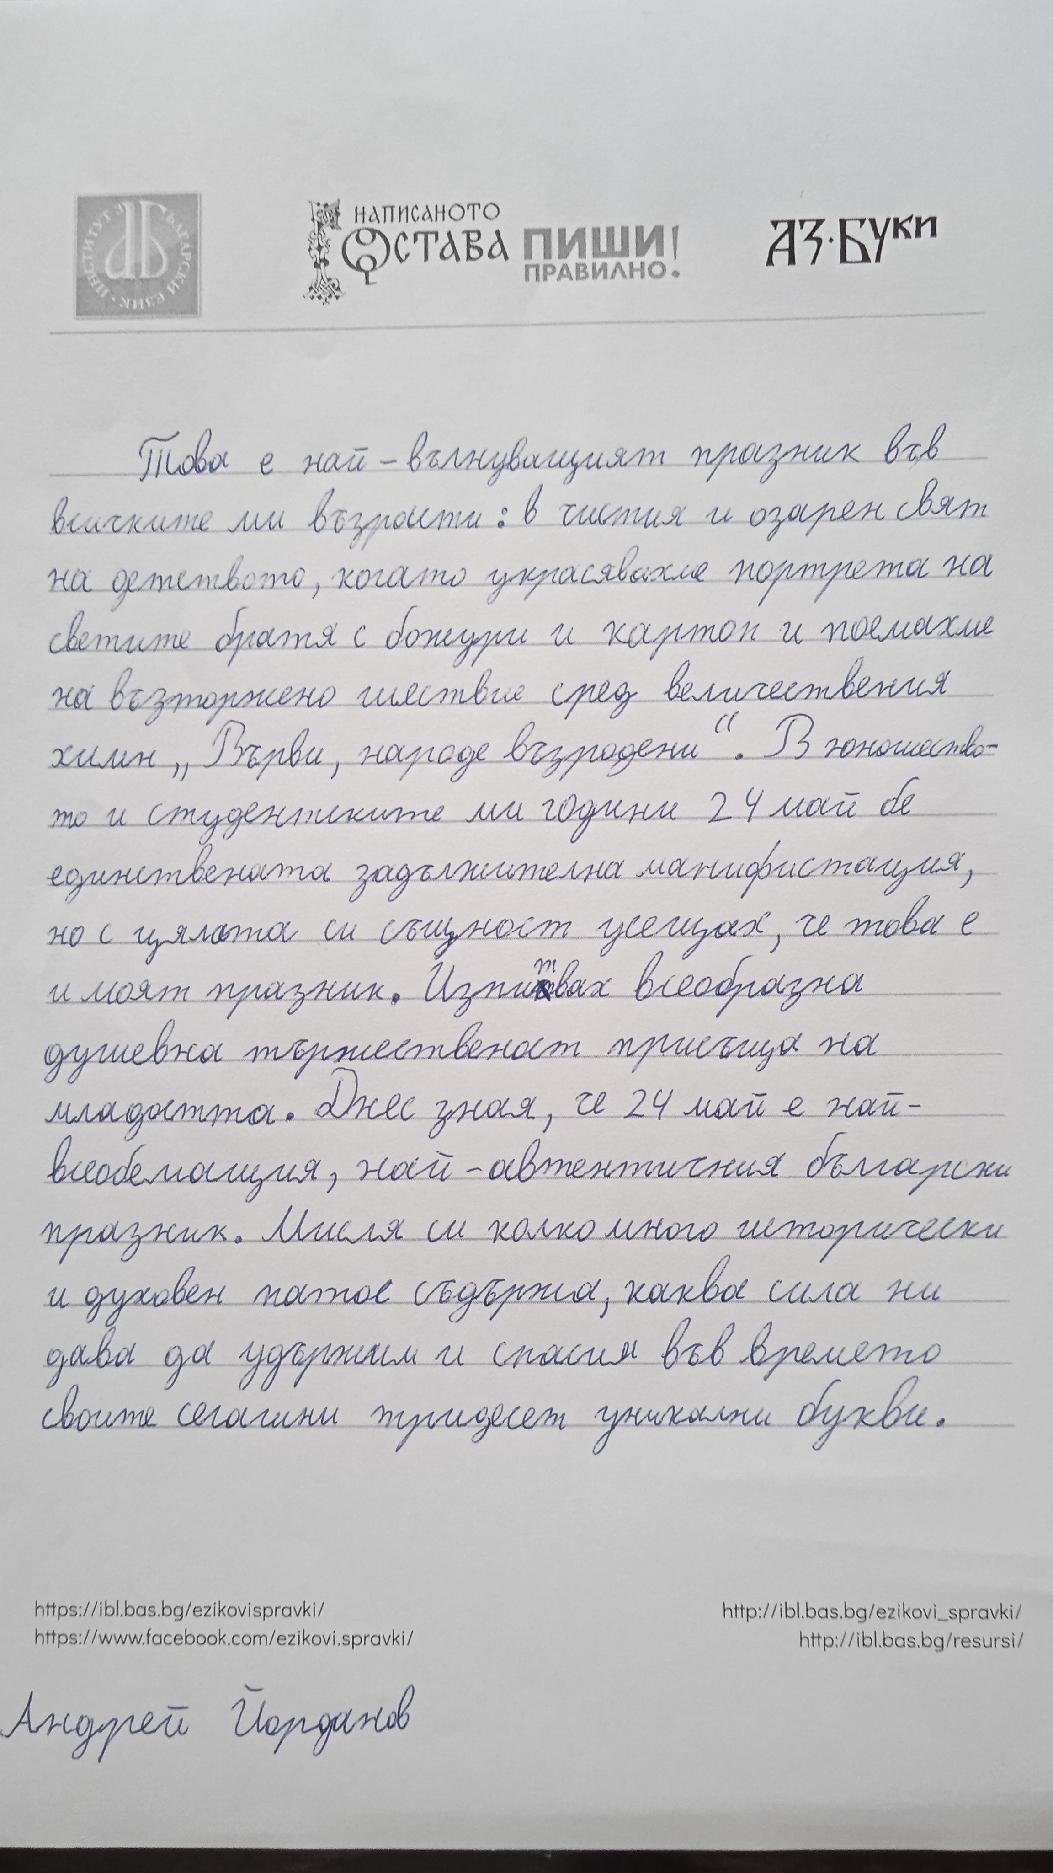 ИНСТИТУТ ЗА БЪЛГАРСКИ ЕЗИК
НАПИСАНОТО
ОСТАВА
ПИШИ
ПРАВИЛНО!
АЗ·БУКИ
Това е най-вълнуващият празник във
всичките ми възрасти: в чистия и озарен свят
на детството, когато украсявахме портрета на
светите братя с божури и картон и поемахме
на възторжено шествие сред величествения
химн „Върви, народе възродени“. В юношество-
то и студентските ми години 24 май бе
единствената задължителна манифистация,
но с цялата си същност усещах, че това е
и моят празник. Изпитвах всеобразна
душевна тържественост присъща на
младостта. Днес зная, че 24 май е най-
всеобемащия, най-автентичния български
празник. Мисля си колко много исторически
и духовен патос съдържа, каква сила ни
дава да удържим и спасим във времето
своите сегашни тридесет уникални букви.
https://ibl.bas.bg/ezikovispravki/
https://www.facebook.com/ezikovi.spravki/
http://ibl.bas.bg/ezikovi_spravki/
http://ibl.bas.bg/resursi/
Андрей Йорданов